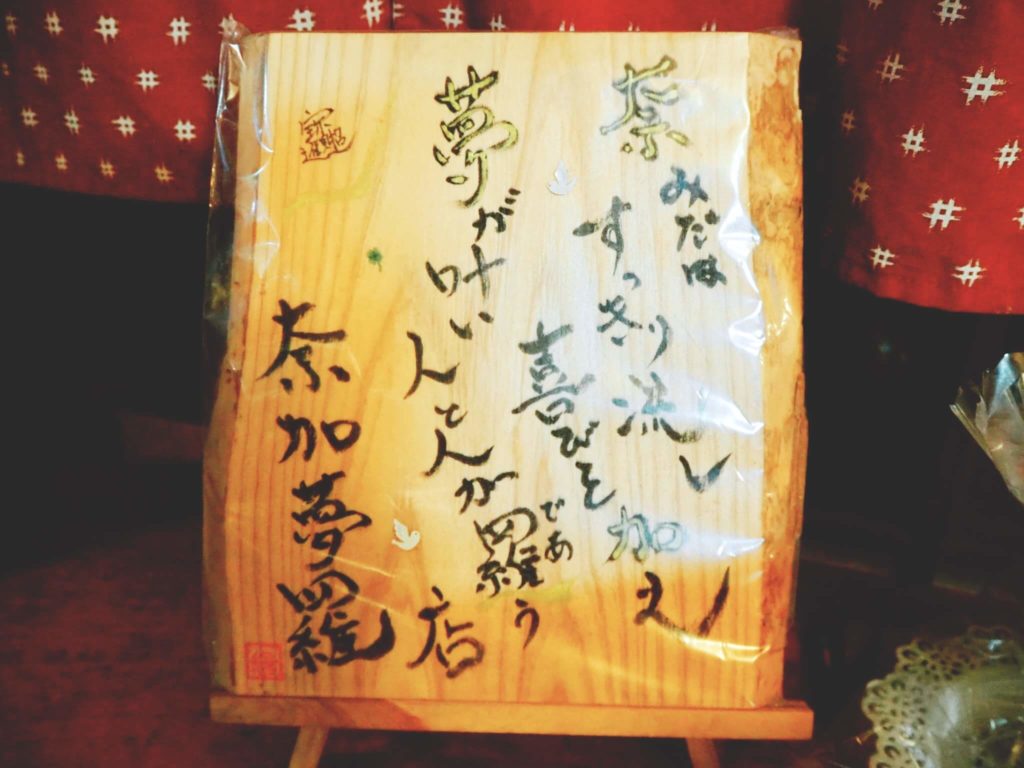 奈みだは
すっきり流し
喜びを加え
夢が叶い
人と人が
羅う
であ
店
奈加夢羅